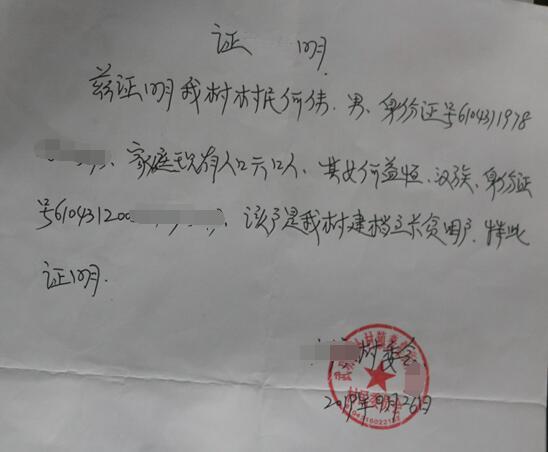 证 明
兹证明我村村民何伟、男、身份证号6104311978
、家庭现有人口六口人、其女何益恒、汉族、身份证
号610431200、该户是我村建档立卡贫困户.特此
证明.
村委会
2019年9月26日